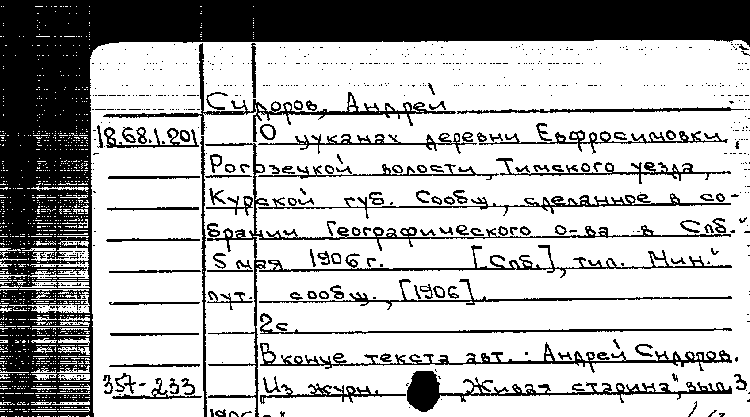 Сидоров, Андрей
18.68.1.201 О цуканах деревни Евфросимовки
Рогозецкой волости, Тимского уезда,
Курской губ. Сообщ., сделанное в со-
брании Географического о-ва в Спб.
5 мая 1906 г. [Спб.], тип. Мин.
пут. сообщ., [1906].
2с.
В конце текста авт.: Андрей Сидоров.
357-233 "Из журн. "Живая старина", вып. 3,